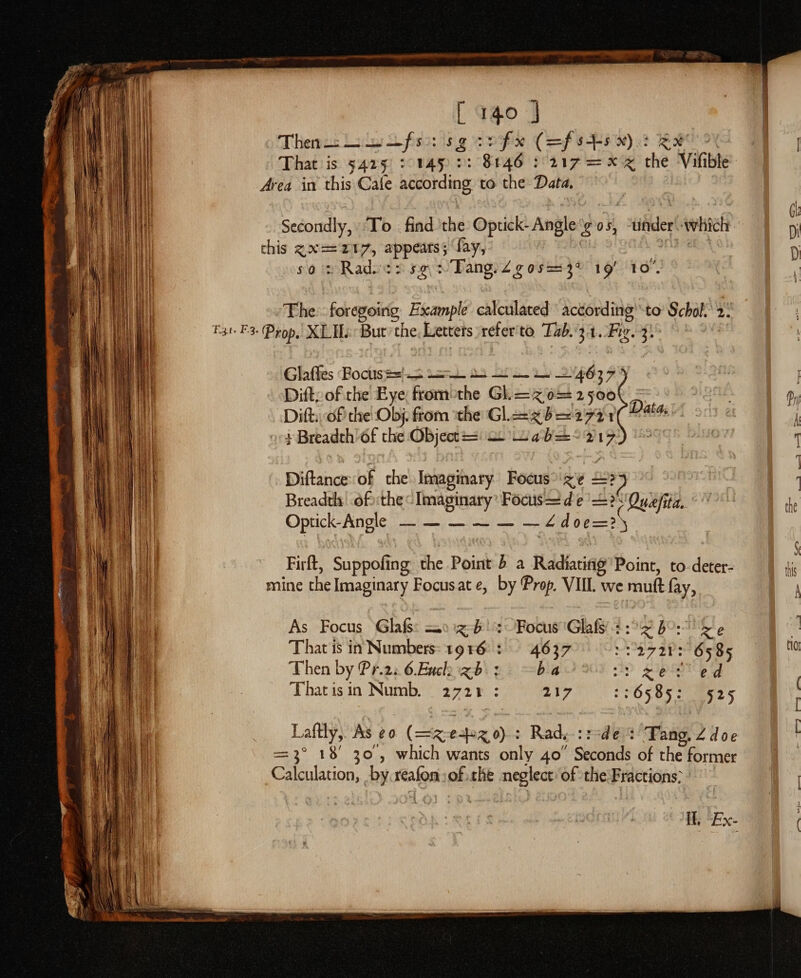 [ 140 ]
Then — — — — fs : sg :: fx (=fs+sx) : zx
That is 5425 : 145 :: 8146 : 217 = xz the Visible
Area in this Case according to the Data.
Secondly, To find the Optick-Angle g os, under which
this zx=217, appears; say,
so : Rad. :: sg : Tang. ∠gos=3° 19′ 10″.
The foregoing Example calculated according to Schol. 2.
T.31. F.3. Prop. XLII. But the Letters refer to Tab. 31. Fig. 3.
Glasses Focus = — — — — — — — 4637
Dist. of the Eye from the Gl.=zo=2500
Dist. of the Obj. from the Gl.=zb=2721
Data.
½ Breadth of the Object = — — ab= 217
Distance of the Imaginary Focus ze =?
Breadth of the Imaginary Focus=de =? Quæsita.
Optick-Angle — — — — — — ∠doe=?
First, Supposing the Point b a Radiating Point, to deter-
mine the Imaginary Focus at e, by Prop. VIII. we must say,
As Focus Glass — zb : Focus Glass :: zb : ze
That is in Numbers 1916 : 4637 :: 2721 : 6585
Then by Pr. 2. 6. Eucl. zb : ba :: ze : ed
That is in Numb. 2721 : 217 :: 6585 : 525
Lastly, As eo (=ze+zo) : Rad. :: de : Tang. ∠doe
=3° 18′ 30″, which wants only 40″ Seconds of the former
Calculation, by reason of the neglect of the Fractions.
II. Ex-